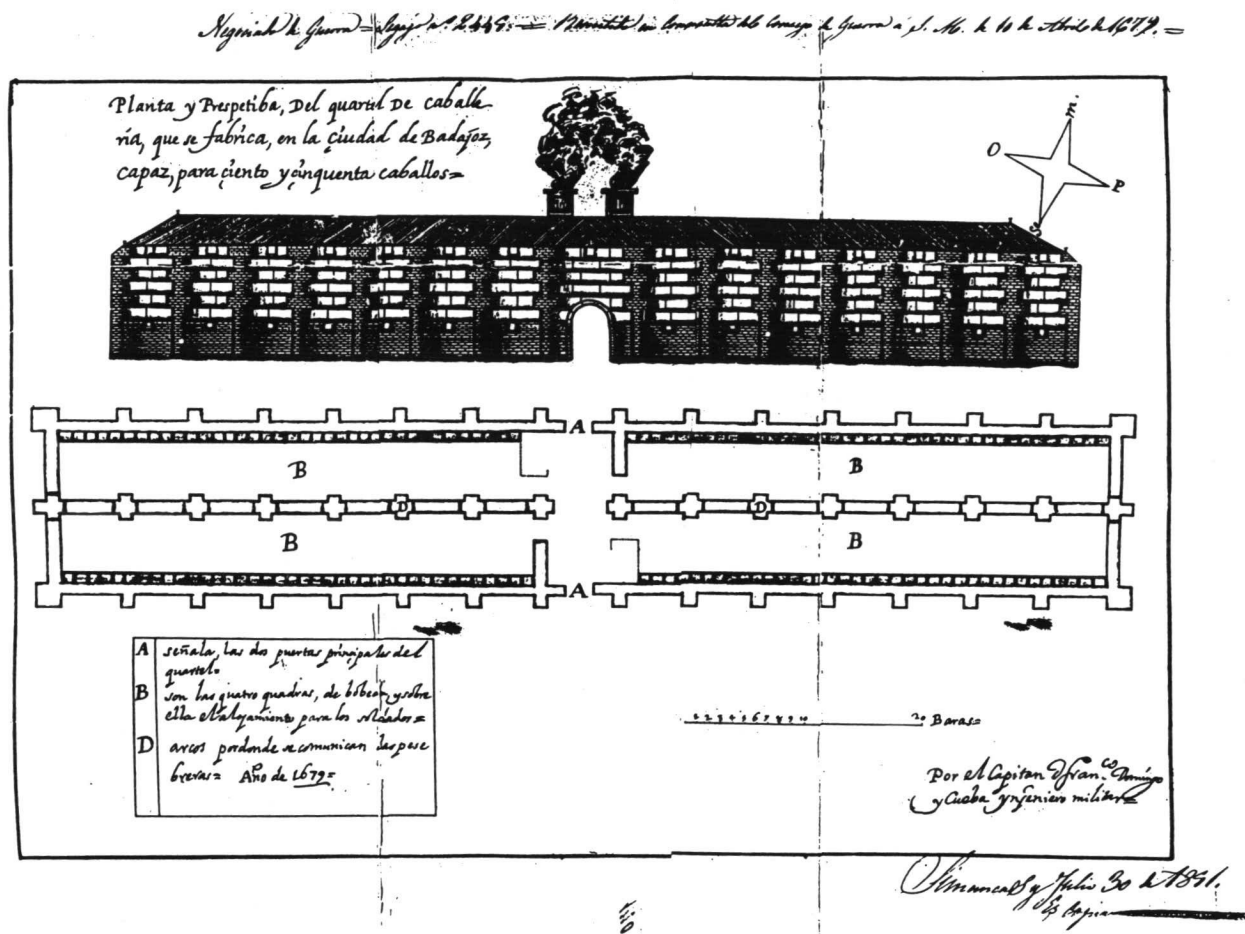 Negociado de Guerra = Legajo nº 2.449. = Remitida en Consulta del Consejo de Guerra a S. M. de 10 de Abril de 1679. =
Planta y Prespetiba, Del quartel De caballe
ria, que se fabrica, en la çiudad de Badajoz,
capaz, para çiento y çinquenta caballos=
m.
O
P
A
B
B
D
D
B
B
A
A señala, las dos puertas prinçipales del
quartel=
B son las quatro quadras, de bobeda, y sobre
ella el alojamiento para los soldados=
D arcos pordonde se comunican las pese
breras= Año de 1679=
1 2 3 4 5 6 7 8 9 10 20 Baras=
Por el Capitan D fran.co Domingo
y Cueba ynjeniero militar=
Simancas y Julio 30 de 1891.
Es copia